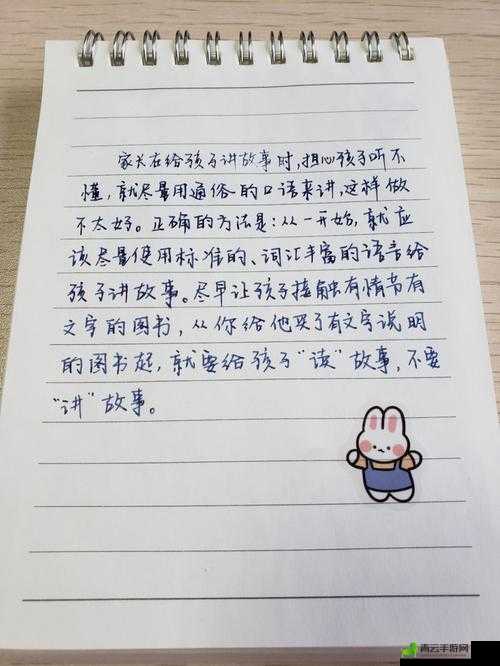 家长在给孩子讲故事时,担心孩子听不
懂,就尽量用通俗的口语来讲,这样做
不太好。正确的方法是:从一开始,就应
该尽量使用标准的、词汇丰富的语言给
孩子讲故事。尽早让孩子接触有情节有
文字的图书,从你给他买了有文字说明
的图书起,就要给孩子“读”故事,不要
“讲”故事。
青云手游网